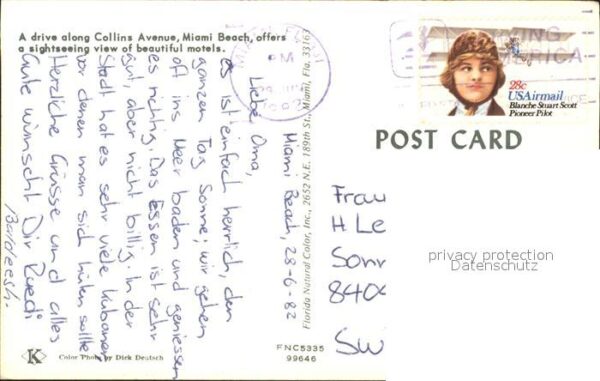 A drive along Collins Avenue, Miami Beach, offers
a sightseeing view of beautiful motels.
Miami Beach, 28-6-82
Liebe Oma,
es ist einfach herrlich, den
ganzen Tag Sonne; wir gehen
oft ins Meer baden und geniessen
es richtig. Das Essen ist sehr
gut, aber nicht billig. In der
Stadt hat es sehr viele Kubaner
vor denen man sich hüten sollte
Herzliche Grüsse und alles
Gute wünscht Dir Ruedi
Color Photo by Dick Deutsch
K
Florida Natural Color, Inc., 2652 N.E. 189th St., Miami, Fla. 33163
FNC5335
99646
PM
28c
USAirmail
Blanche Stuart Scott
Pioneer Pilot
POST CARD
Frau
H Le
Sonn
8404
Swi
privacy protection
Datenschutz